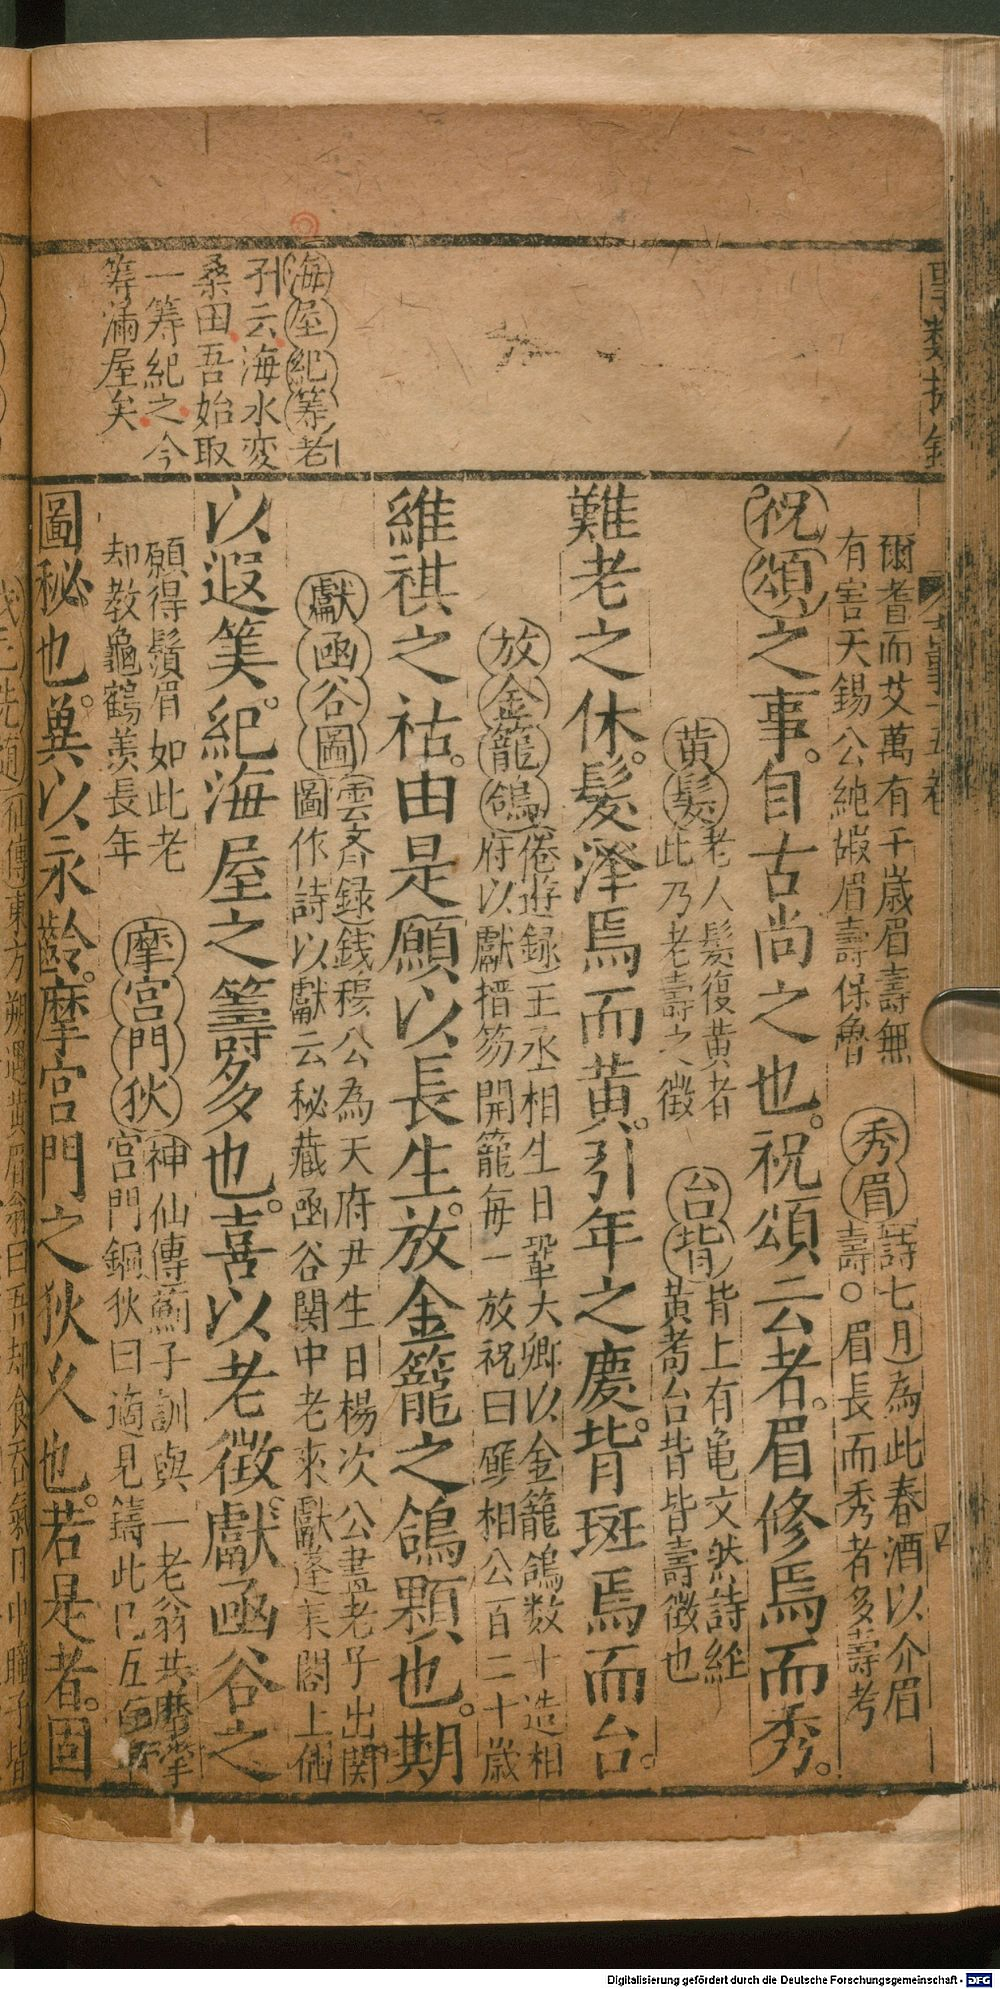 爾耆而艾萬有千歲眉壽無
有害天錫公純嘏眉壽保魯
秀眉(詩七月)為此春酒以介眉
壽○眉長而秀者多壽考
祝頌之事。自古尚之也。祝頌云者。眉修焉而秀。
黃髮老人髮復黃者
此乃老壽之徵
台背背上有龜文狀詩經
黃耈台背皆壽徵也
難老之休。髮澤焉而黃。引年之慶。背斑焉而台。
放金籠鴿(倦遊録)王丞相生日鞏大卿以金籠鴿数十造相
府以獻搢笏開籠每一放祝曰願相公百二十歲
維祺之祜。由是願以長生。放金籠之鴿顆也。期
獻函谷圖(雲斎録)錢穆公為天府尹生日楊次公畫老子出関
圖作詩以獻云秘藏函谷関中老來獻蓬萊閣上仙
以遐筭。紀海屋之籌多也。喜以老徵。獻函谷之
海屋紀筹老
孑云海水変
桑田吾始取
一筹紀之今
筹滿屋矣
願得鬚眉如此老
却教龜鶴羨長年
摩宮門狄(神仙傳)薊子訓與一老翁共摩挲
宮門銅狄曰適見鑄此已五百
圖秘也。兾以永齡。摩宮門之狄久也。若是者。固
Digitalisierung gefördert durch die Deutsche Forschungsgemeinschaft - DFG